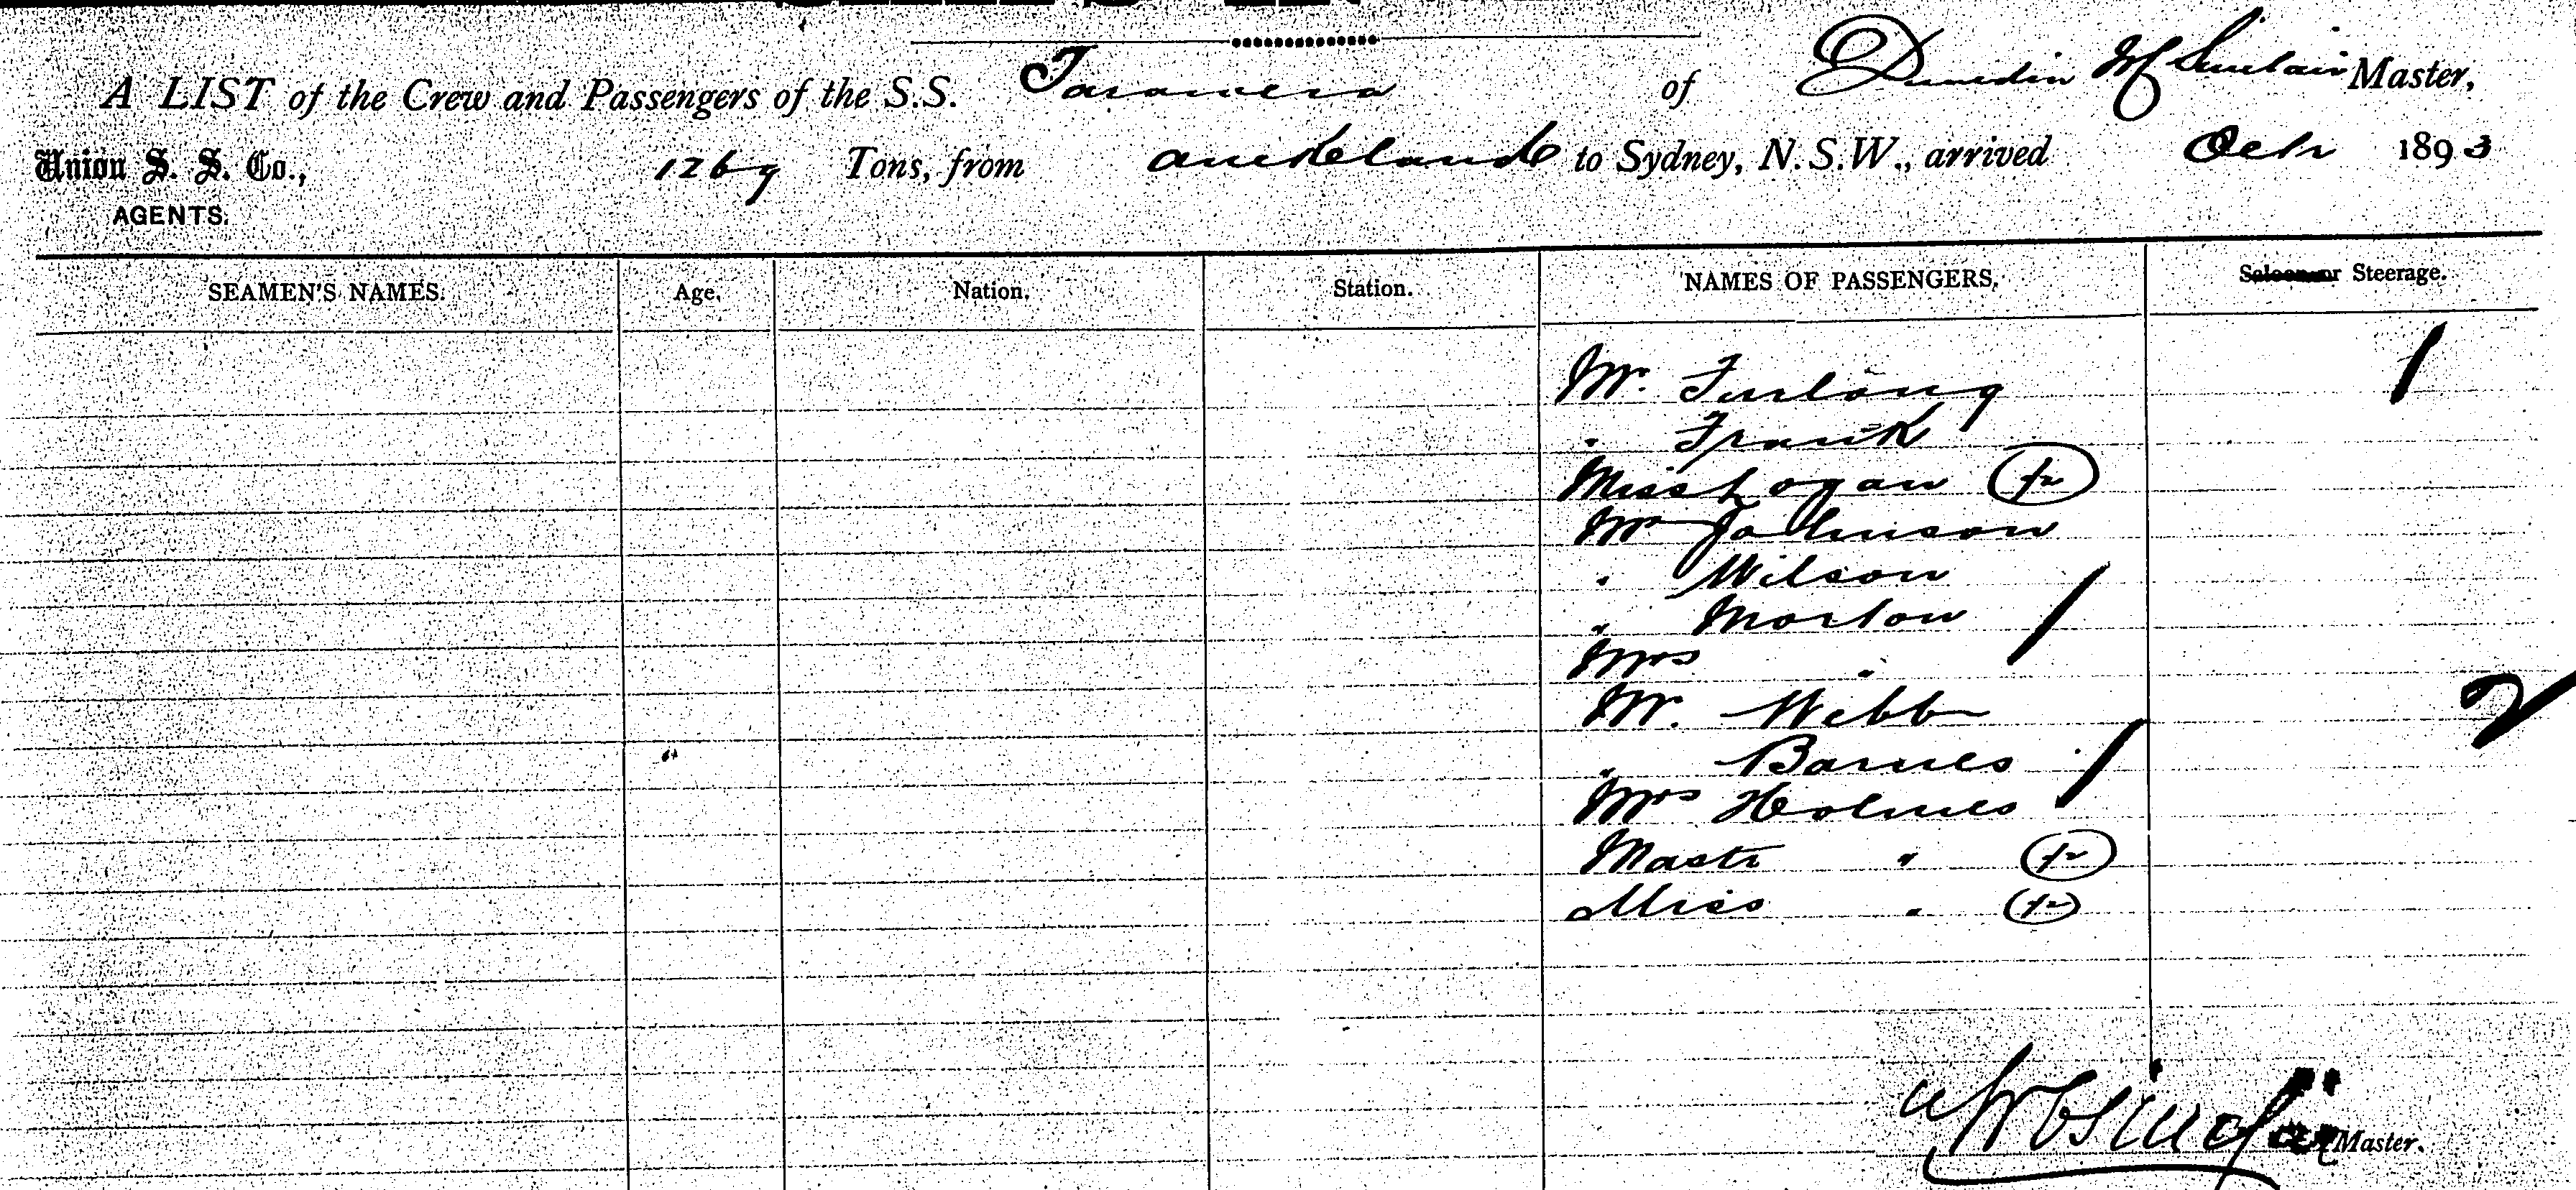 A LIST of the Crew and Passengers of the S.S. Tarawera of Dunedin Sinclair Master,
Union S. S. Co., 1269 Tons, from Auckland to Sydney, N.S.W., arrived Octr 1893
AGENTS.
SEAMEN'S NAMES. Age. Nation. Station. NAMES OF PASSENGERS. Saloon or Steerage.
Mr. Furlong
" Frank
Miss Logan (1/2)
Mr Johnson
" Wilson
" Morton
Mrs "
Mr. Webb
" Barnes
Mrs Holmes
Mastr " (1/2)
Miss " (1/2)
Sinclair Master.